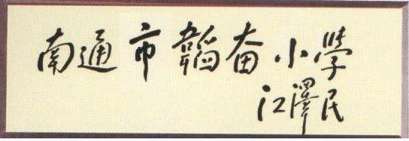 南通市韜奋小學
江澤民